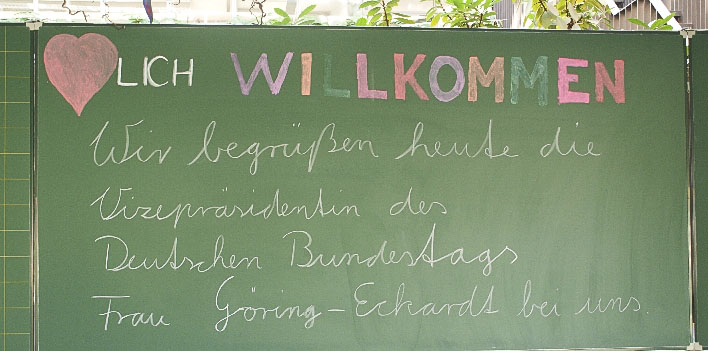 LICH WILLKOMMEN
Wir begrüßen heute die
Vizepräsidentin des
Deutschen Bundestags
Frau Göring-Eckardt bei uns.